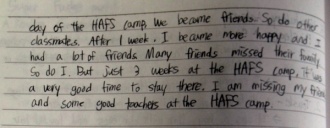 day of the HAFS camp. We became friends. So do other
classmates. After 1 week. I became more happy and I
had a lot of friends. Many friends missed their family.
So do I. But just 3 weeks at the HAFS camp, it was
a very good time to stay there. I am missing my friends
and some good teachers at the HAFS camp.